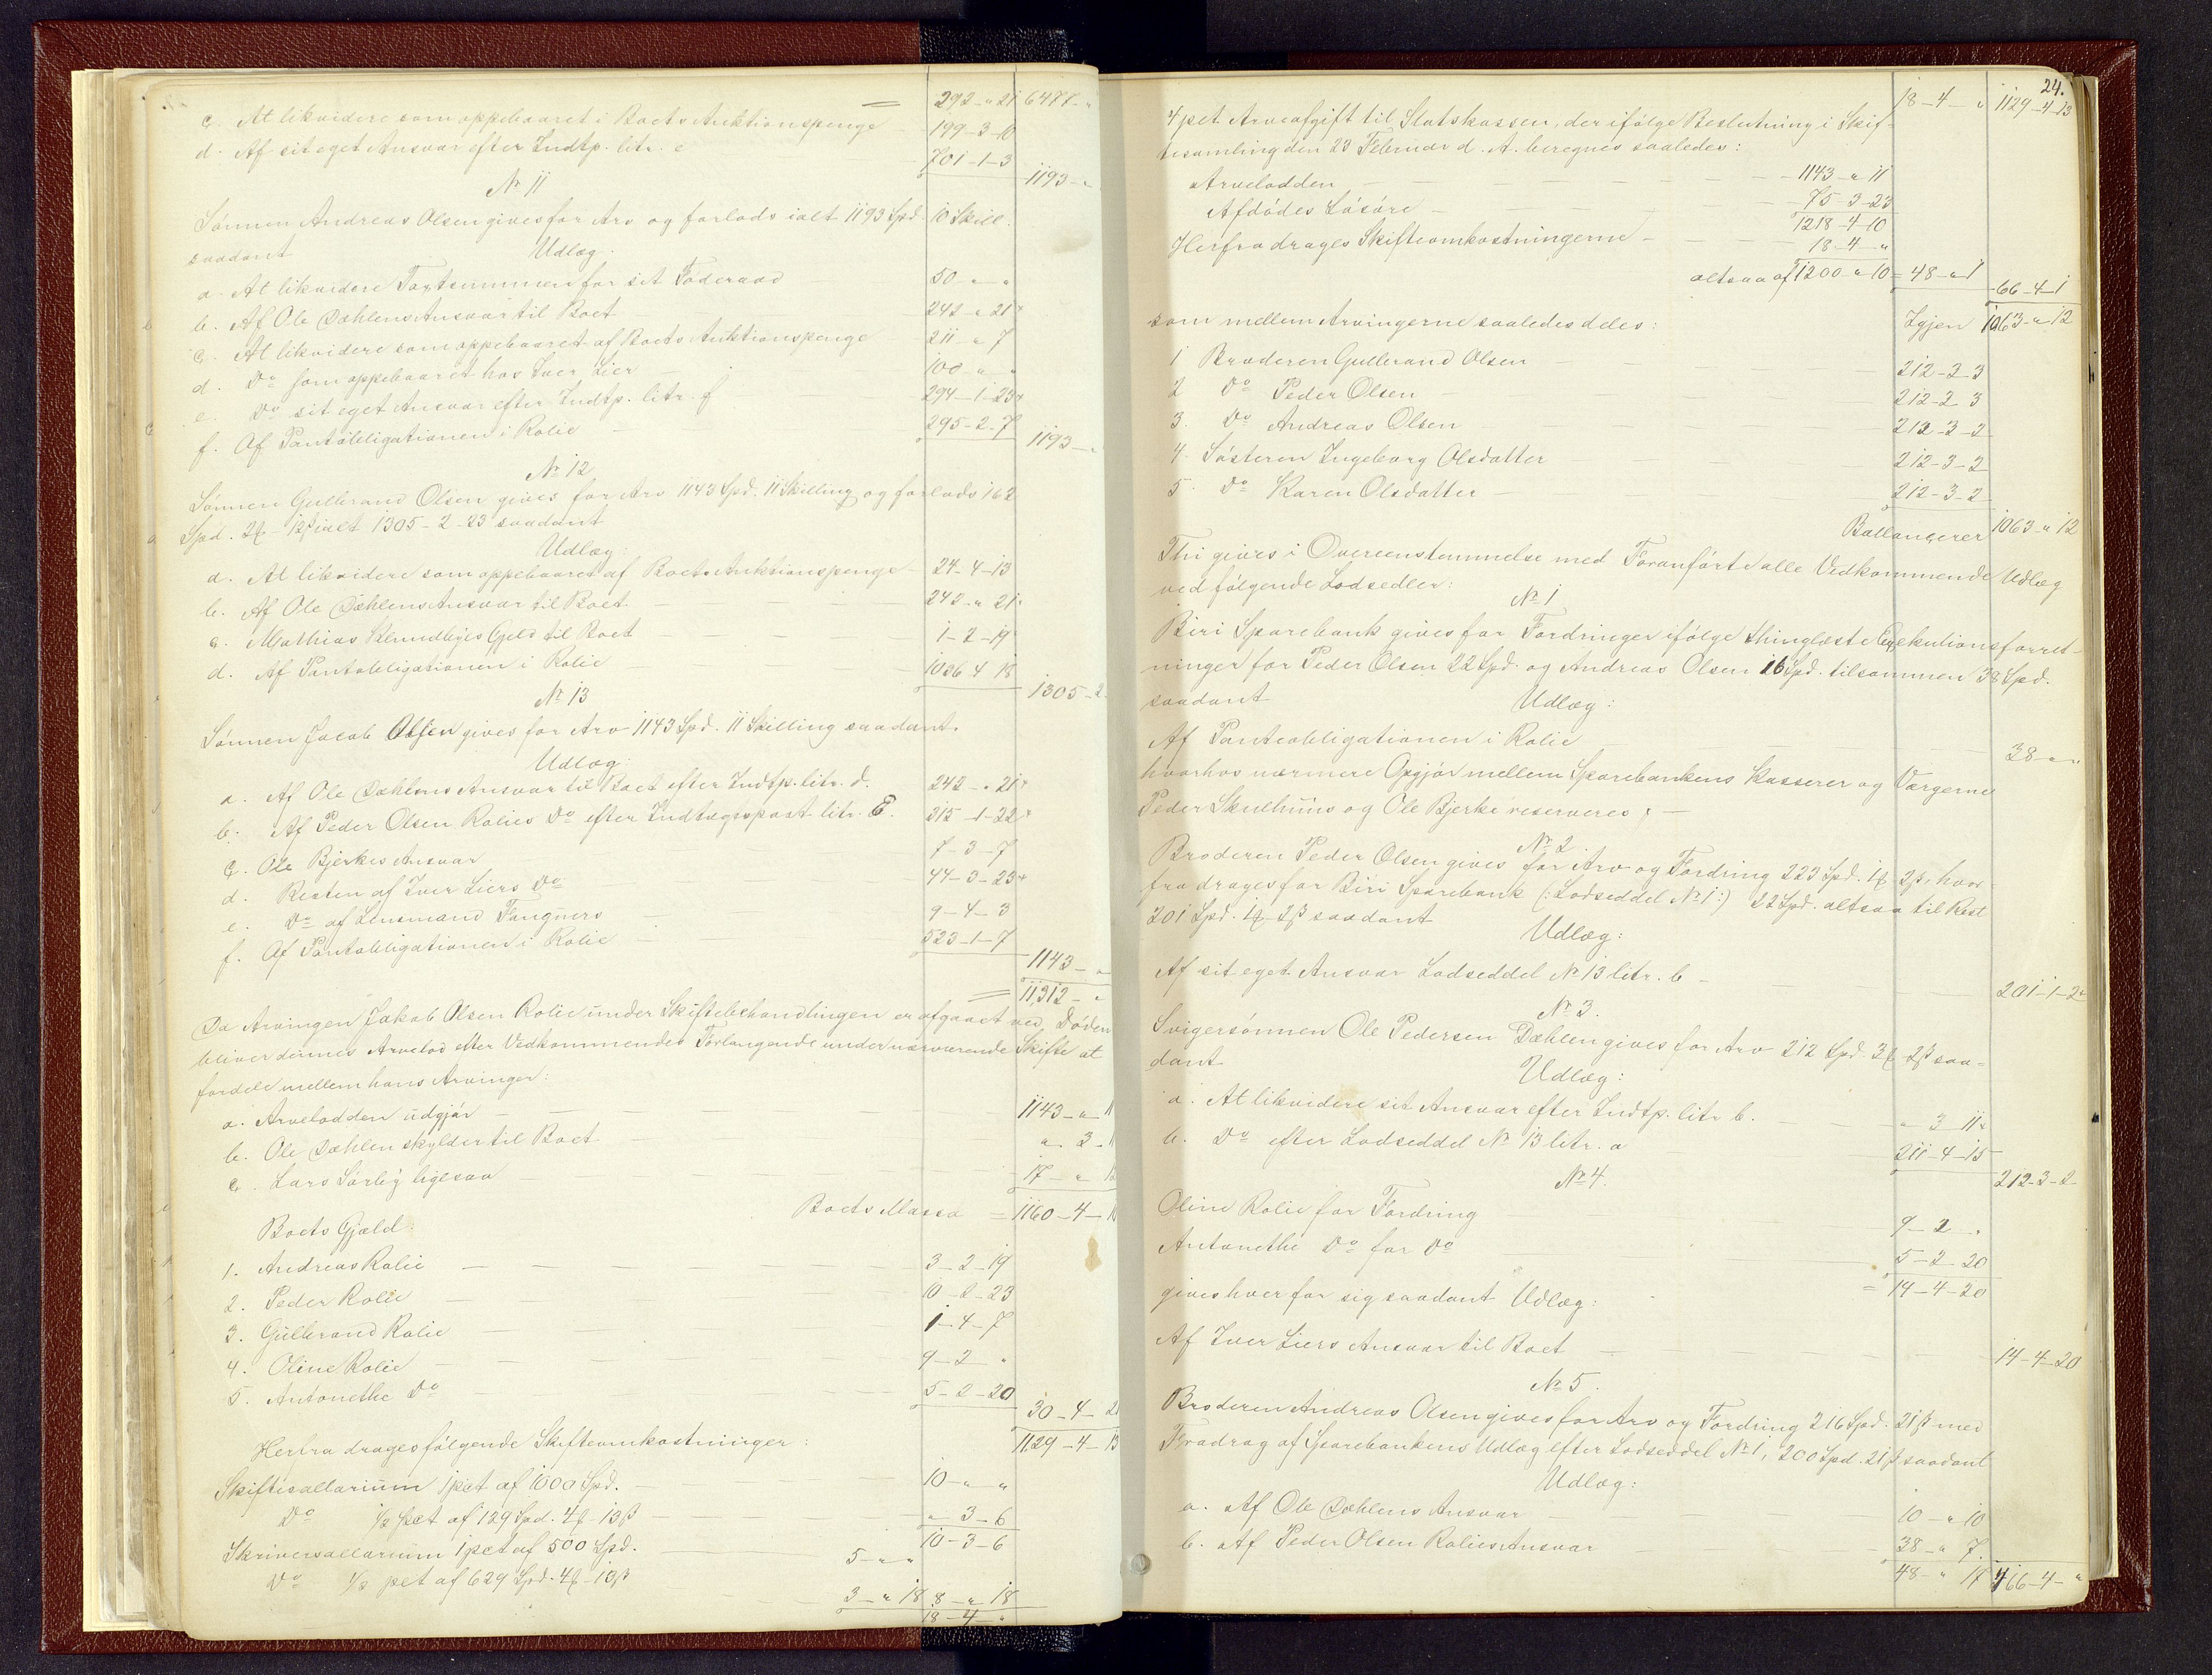 = 292 - " 21 6477 - "
c. At likvidere som oppebaaret i Boets Auktionspenge 199-3-10
d. Af sit eget Ansvar efter Indtp. litr. e 701-1-3
1193 - "
№ 11
Sønnen Andreas Olsen gives for Arv og forlods ialt 1193 Spd. 10 Skill.
saadant Udlæg:
a. At likvidere Taxtsummen for sit Føderaad 50 - " "
b. Af Ole Dæhlens Ansvar til Boet 242 - " 21
c. At likvidere som oppebaaret af Boets Auktionspenge 211 " 7
d. Do som oppebaaret hos Iver Lier 100 - " "
e. Do sit eget Ansvar efter Indtp. litr. f 294-1-23
f. Af Pantobligationen i Rolie 295-2-7
1193 - "
№ 12
Sønnen Gulbrand Olsen gives for Arv 1143 Spd. 11 Skilling og forlods 162
Spd. 2 - 12 ß ialt 1305-2-23 saadant
Udlæg:
a. At likvidere som oppebaaret af Boets Auktionspenge 24-4-13
b. Af Ole Dæhlens Ansvar til Boet 242 - " 21
c. Mathias Klundbyes Gjeld til Boet 1-2-19
d. Af Pantobligationen i Rolie 1036 4 18
1305-2
№ 13
Sønnen Jacob Olsen gives for Arv 1143 Spd. 11 Skilling saadant
Udlæg:
a. Af Ole Dæhlens Ansvar til Boet efter Indtp. litr. d. 242 - " 21
b. Af Peder Olsen Rolies Do efter Indtægtspost litr. E. 315-1-22
c. Ole Bjerkes Ansvar 7-3-7
d. Resten af Iver Liers Do 44-3-23
e. Do af Lensmand Fangners 9-4-3
f. Af Pantobligationen i Rolie 523-1-7
1143 - "
= 11,312 - "
Da Arvingen Jakob Olsen Rolie under Skiftebehandlingen er afgaaet ved Døden
bliver dennes Arvelod efter Vedkommendes Forlangende under nærværende Skifte at
fordele mellem hans Arvinger:
a. Arvelodden udgjør 1143 - " 11
b. Ole Dæhlen skylder til Boet " 3 - 11
c. Lars Sørby ligesaa 17 - " 1
Boets Massa = 1160-4-1
Boets Gjæld:
1. Andreas Rolie 3-2-19
2. Peder Rolie 10-2-23
3. Gulbrand Rolie 1-4-7
4. Oline Rolie 9-2 "
5. Antonethe Do 5-2-20
30-4-21
1129-4-13
Herfra drages følgende Skifteomkostninger:
Skiftesallarium 1 pct af 1000 Spd. 10 - " "
Do ½ pct af 129 Spd. 4 - 13 ß " 3-6
10-3-6
Skriversallarium 1 pct af 500 Spd. 5 - " "
Do ½ pct af 629 Spd. 4 - 13 ß 3 - " 18 8 - " 18
18-4 "
24.
18-4 - " 1129-4-13
4 pct Arveafgift til Statskassen, der ifølge Beslutning i Skif-
tesamling den 23 Februar d. A. beregnes saaledes:
Arvelodden 1143 - " 11
Afdødes Løsøre 75-3-23
1218-4-10
Herfra drages Skifteomkostningerne 18-4 - "
altsaa af 1200 - " 10 = 48 - " 1
66-4-1
Igjen 1063 - " 12
som mellem Arvingerne saaledes deles:
1 Broderen Gulbrand Olsen 212-3-3
2 Do Peder Olsen 212-2 3
3. Do Andreas Olsen 212-3-2
4. Søsteren Ingeborg Olsdatter 212-3-2
5. Do Karen Olsdatter 212-3-2
Ballancerer 1063 " 12
Thi gives i Overeenstemmelse med Foranførte alle Vedkommende Udlæg
ved følgende Lodsedler:
№ 1
Biri Sparebank gives for Fordringer ifølge thinglæste Exekutionsforret-
ninger for Peder Olsen 22 Spd. og Andreas Olsen 16 Spd. tilsammen 38 Spd.
saadant Udlæg:
Af Panteobligationen i Rolie 38 - " "
hvorhos nærmere Opgjør mellem Sparebankens Kasserer og Værgerne
Peder Skulhuus og Ole Bjerke reserveres; -
№ 2.
Broderen Peder Olsen gives for Arv og Fordring 223 Spd. 1 - 2 ß, hvor-
fra drages for Biri Sparebank (: Lodseddel № 1:) 22 Spd. altsaa til Rest
201 Spd. 1 - 2 ß saadant
Udlæg:
Af sit eget Ansvar Lodseddel № 13 litr. b 201-1-2
№ 3.
Svigersønnen Ole Pedersen Dæhlen gives for Arv 212 Spd. 3 2 ß saa-
dant Udlæg:
a. At likvidere sit Ansvar efter Indtp. litr b. " 3 11
b. Do efter Lodseddel № 13 litr. a 211-4-15
212-3-2
№ 4.
Oline Rolie for Fordring 9-2 "
Antonethe Do for Do 5-2-20
= 14-4-20
gives hver for sig saadant Udlæg:
Af Iver Liers Ansvar til Boet 14-4-20
№ 5.
Broderen Andreas Olsen gives for Arv og Fordring 216 Spd. 21 ß med
Fradrag af Sparebankens Udlæg efter Lodseddel № 1, 200 Spd. 21 ß saadant
Udlæg:
a. Af Ole Dæhlens Ansvar 10 - " 10
b. Af Peder Olsen Rolies Ansvar 38 - " 7
48 - " 17 466-4 - "